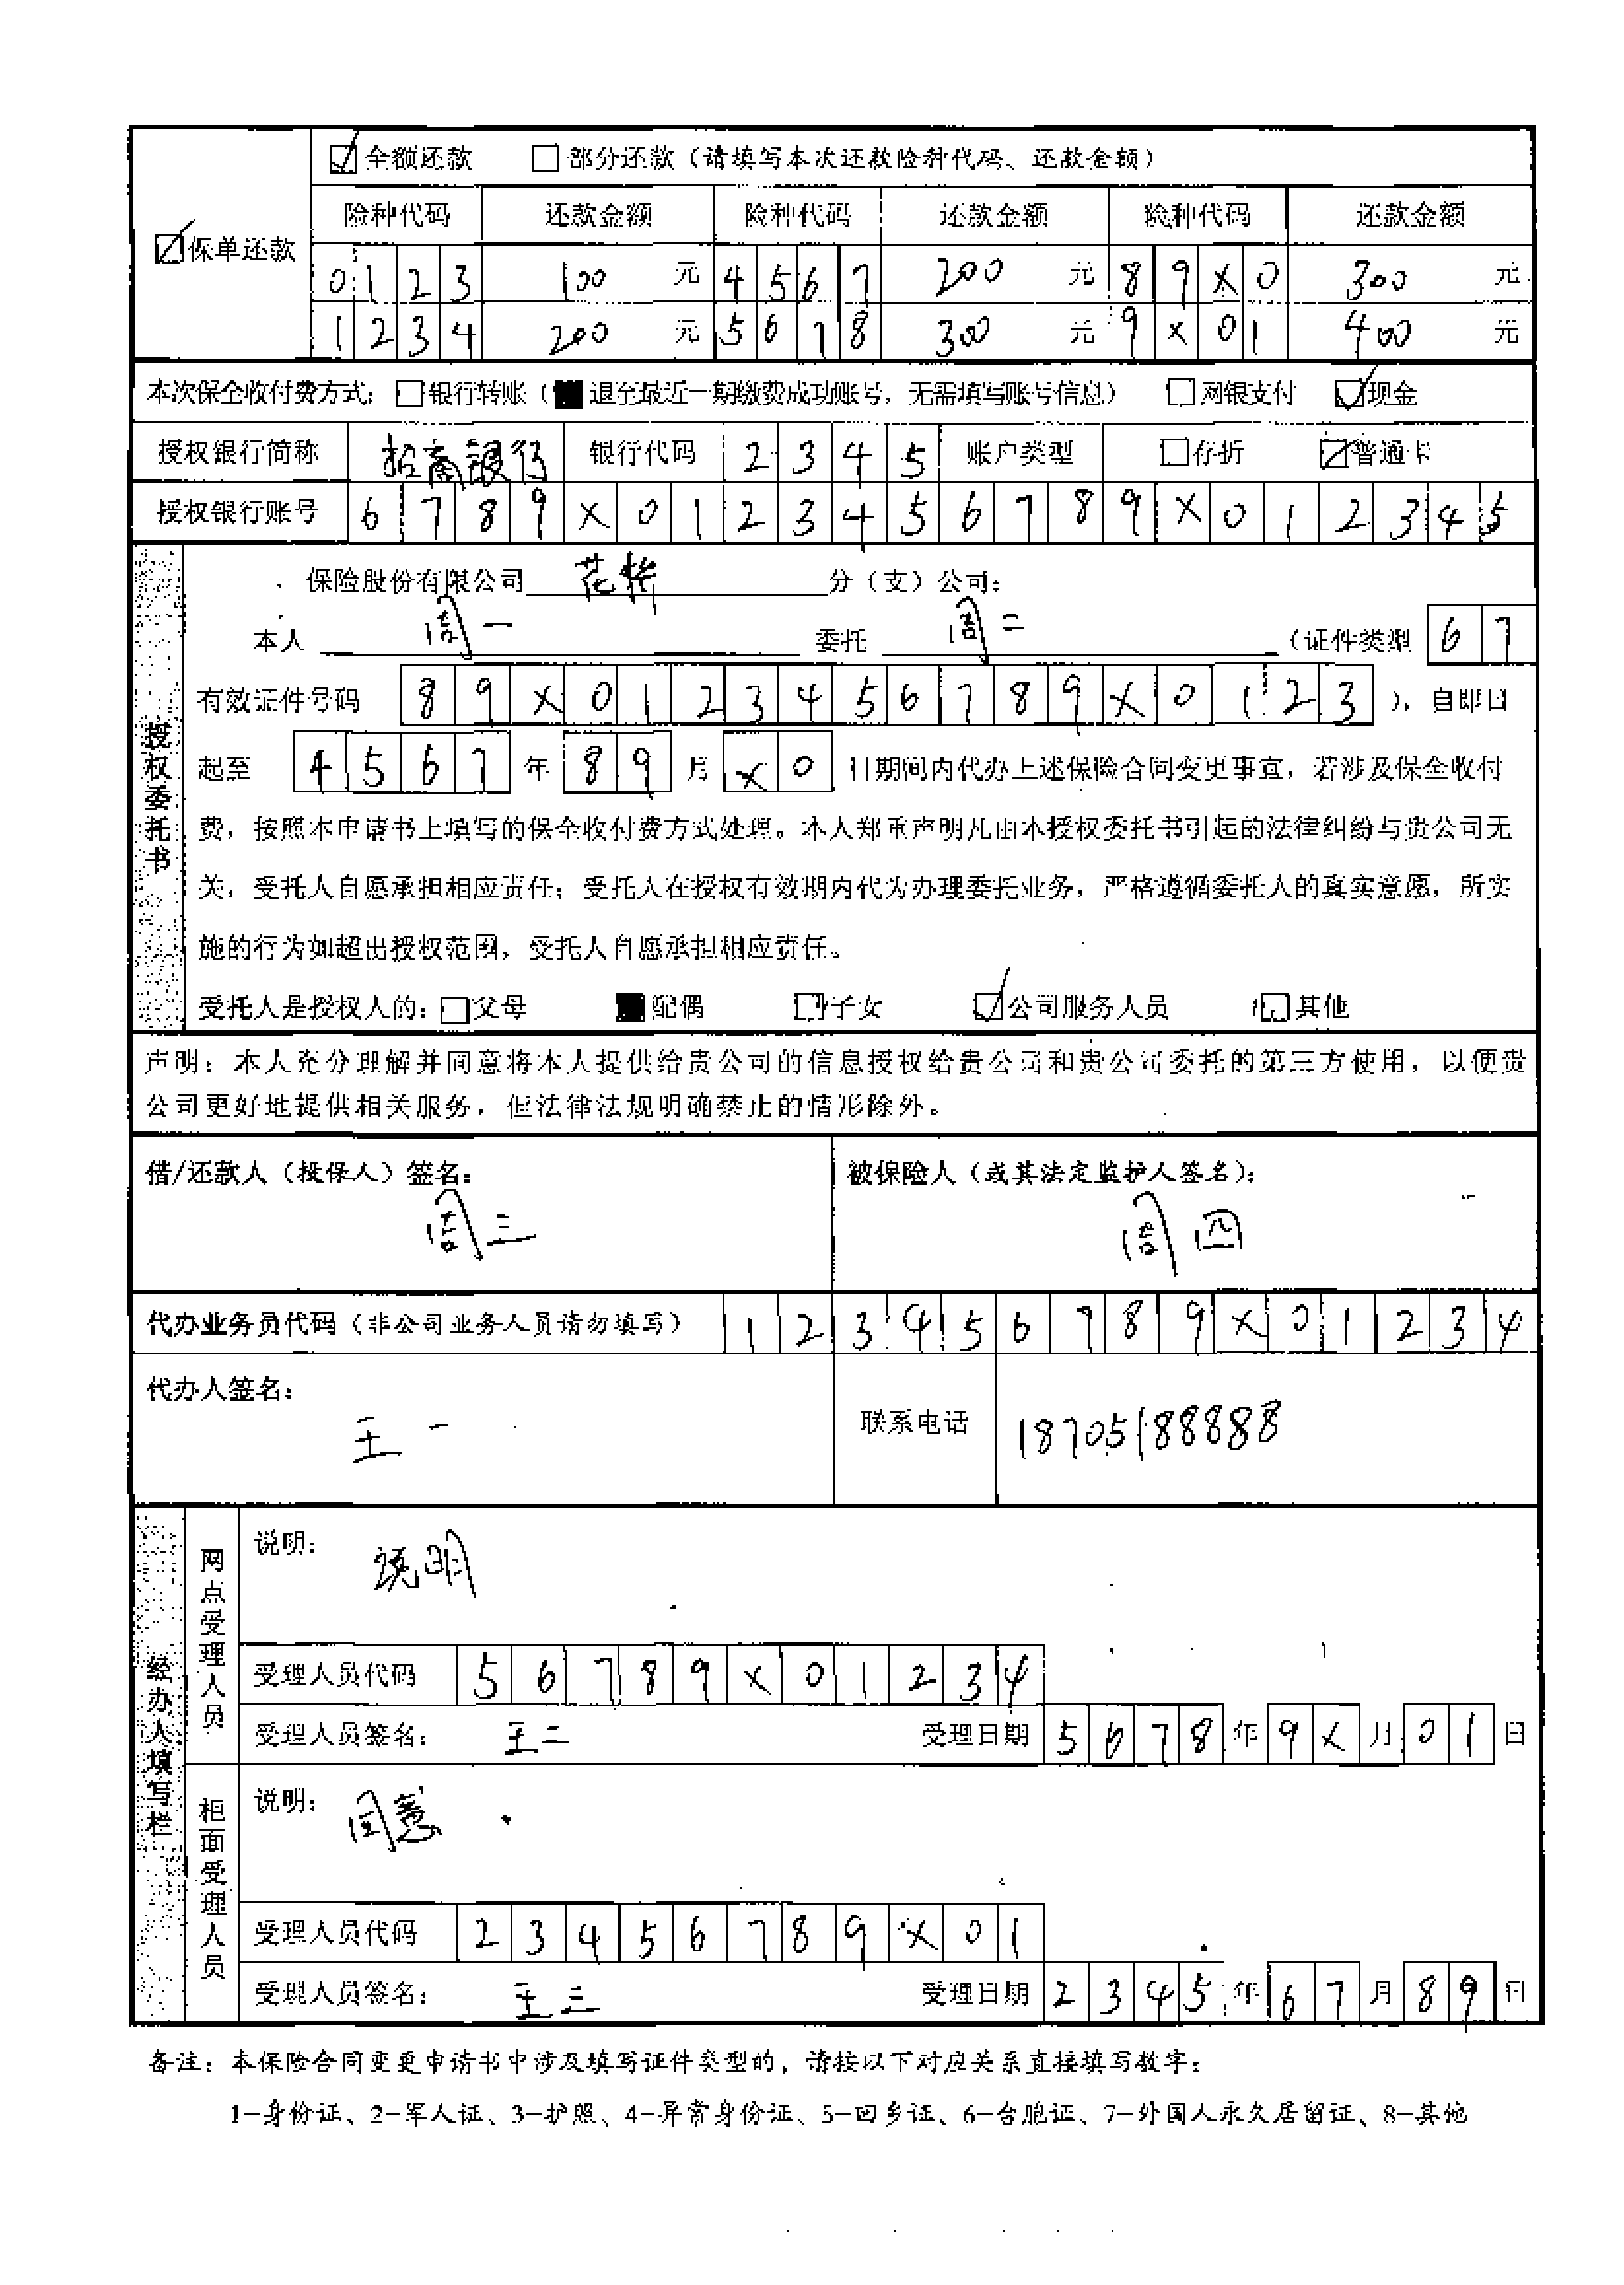 ☑全额还款 □部分还款（请填写本次还款险种代码、还款金额）
☑保单还款
险种代码 还款金额 险种代码 还款金额 险种代码 还款金额
0123 100 元 4567 200 元 89X0 300 元
1234 200 元 5678 300 元 9X01 400 元
本次保全收付费方式：□银行转账（■退至最近一期缴费成功账号，无需填写账号信息） □网银支付 ☑现金
授权银行简称 招商银行 银行代码 2345 账户类型 □存折 ☑普通卡
授权银行账号 6789X0123456789X012345
授权委托书
保险股份有限公司 分（支）公司：
本人 周一 委托 周二 （证件类型 67
有效证件号码 89X0123456789X0123 ），自即日
起至 4567 年 89 月 X0 日期间内代办上述保险合同变更事宜，若涉及保全收付
费，按照本申请书上填写的保全收付费方式处理。本人郑重声明凡由本授权委托书引起的法律纠纷与贵公司无
关，受托人自愿承担相应责任；受托人在授权有效期内代为办理委托业务，严格遵循委托人的真实意愿，所实
施的行为如超出授权范围，受托人自愿承担相应责任。
受托人是授权人的：□父母 ■配偶 □子女 ☑公司服务人员 □其他
声明：本人充分理解并同意将本人提供给贵公司的信息授权给贵公司和贵公司委托的第三方使用，以便贵
公司更好地提供相关服务，但法律法规明确禁止的情形除外。
借/还款人（投保人）签名： 被保险人（或其法定监护人签名）：
周三 周四
代办业务员代码（非公司业务人员请勿填写） 123456789X01234
代办人签名： 王一 联系电话 18705188888
经办人填写栏
网点受理人员
说明： 说明
受理人员代码 56789X01234
受理人员签名： 王二 受理日期 5678 年 9X 月 01 日
柜面受理人员
说明： 同意
受理人员代码 23456789X01
受理人员签名： 王三 受理日期 2345 年 67 月 89 日
备注：本保险合同变更申请书中涉及填写证件类型的，请按以下对应关系直接填写数字：
1-身份证、2-军人证、3-护照、4-异常身份证、5-回乡证、6-台胞证、7-外国人永久居留证、8-其他